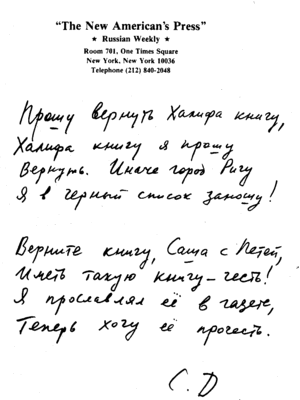 "The New American's Press"
★ Russian Weekly ★
Room 701, One Times Square
New York, New York 10036
Telephone (212) 840-2048
Прошу вернуть Халифа книгу,
Халифа книгу я прошу
Вернуть. Иначе город Ригу
Я в черный список заношу!
Верните книгу, Саша с Петей,
Иметь такую книгу — честь!
Я прославлял её в газете,
Теперь хочу её прочесть.
С. Д